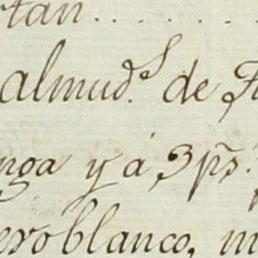 rtan........
almud.s de F
nga y á 3 p.s
exoblanco, m